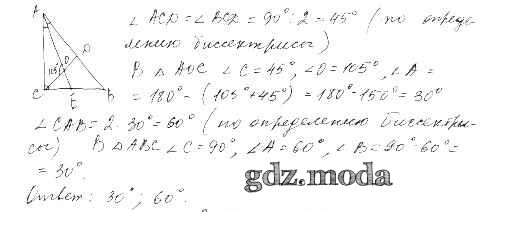 A
∠ACD = ∠BCD = 90° : 2 = 45° (по опреде-
лению биссектрисы)
D
105°
O
C
E
B
В △ AOC ∠C = 45°, ∠O = 105°, ∠A =
= 180° - (105° + 45°) = 180° - 150° = 30°
∠CAB = 2 · 30° = 60° (по определению биссектри-
сы) В △ ABC ∠C = 90°, ∠A = 60°, ∠B = 90° - 60° =
= 30°.
gdz.moda
Ответ: 30°; 60°.